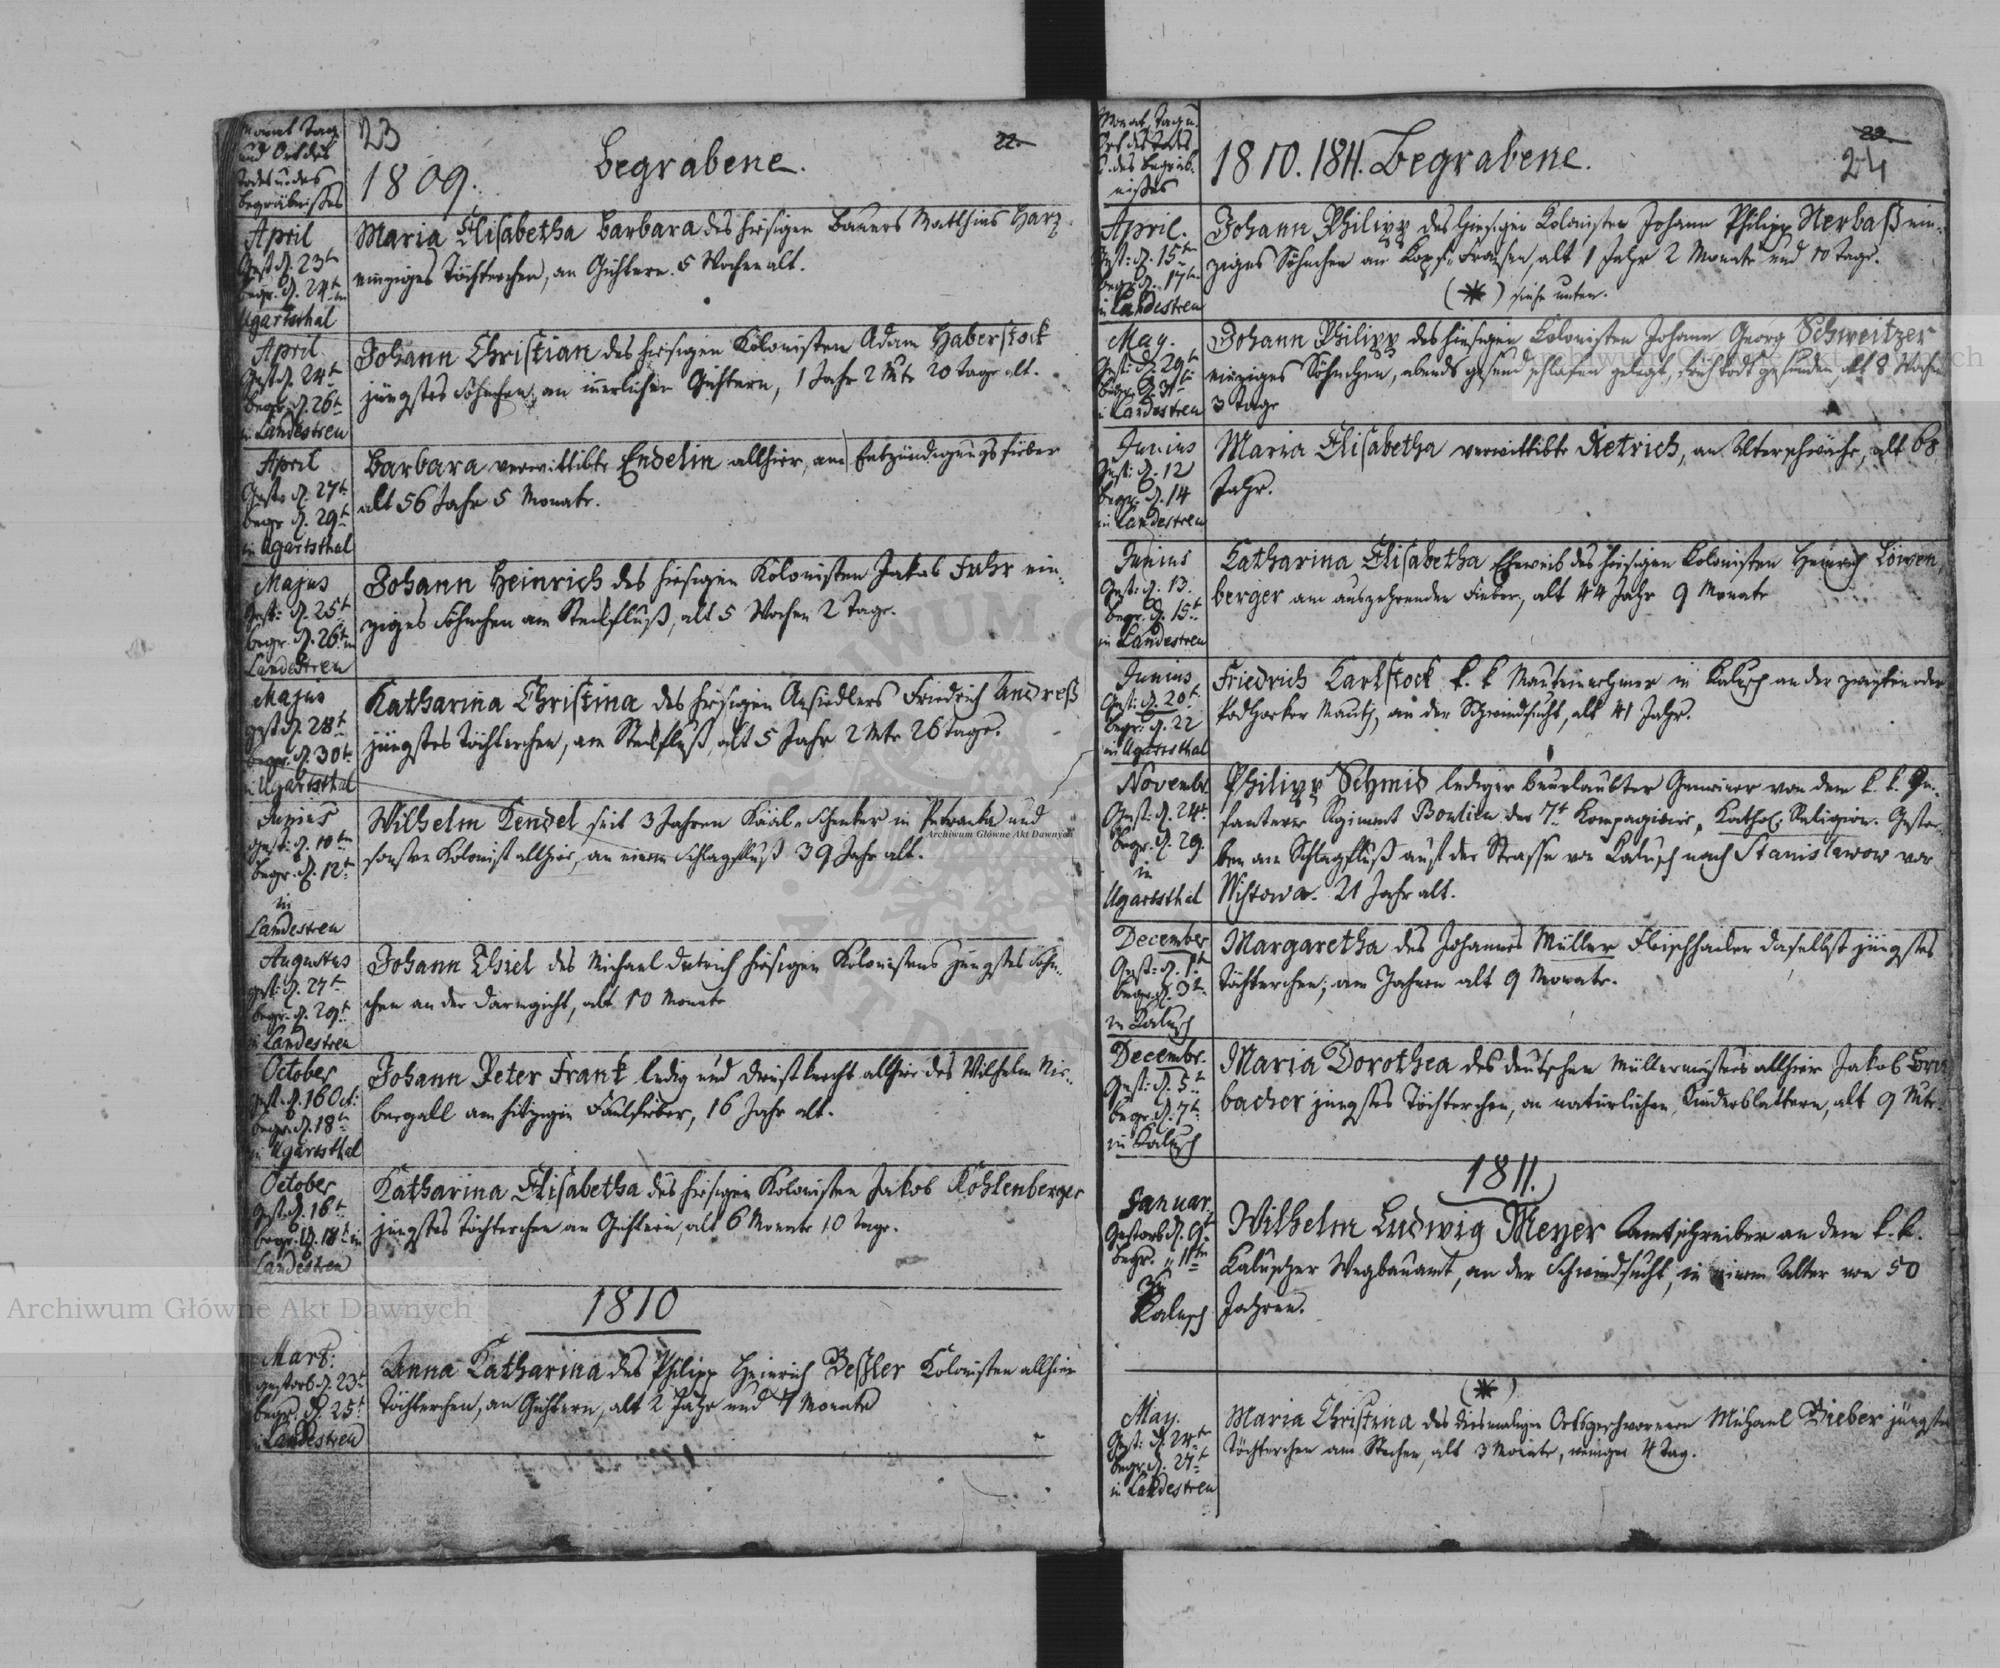 Monat Tag
und Ort des
Todes u. des
Begräbnißes
23
22
1809.
Begrabene.
April
Gest. d. 23t
begr. d. 24t in
Ugartsthal
Maria Elisabetha Barbara des hiesigen Bauers Matthias Harz
einziges Töchterchen, an Gichtern. 5 Wochen alt.
April
Gest. d. 24t
begr. d. 26t
in Landestreu
Johann Christian des hiesigen Kolonisten Adam Haberstock
jüngstes Söhnchen, an innerlichen Gichtern, 1 Jahr 2 Mte 20 Tage alt.
April
Gest. d. 27t
begr. d. 29t
in Ugartsthal
Barbara verwittibte Endelin allhier, am Entzündigungsfieber
alt 56 Jahr 5 Monate.
Majus
Gest: d. 25t
begr. d. 26t in
Landestreu
Johann Heinrich des hiesigen Kolonisten Jakob Fuhr ein-
ziges Söhnchen am Steckfluß, alt 5 Wochen 2 Tage.
Majus
gest. d. 28t
begr: d. 30t
in Ugartsthal
Katharina Christina des hiesigen Ansiedlers Friedrich Andreß
jüngstes Töchterchen, am Steckfluß, alt 5 Jahr 2 Mte 26 Tage.
Junius
gest: d. 10ten
begr. d. 12t
in
Landestreu
Wilhelm Kendel seit 3 Jahren Schenker in Petranka und
sonsten Kolonist allhier, an einem Schlagfluß 39 Jahr alt.
Augustus
gest: d. 27t
begr: d. 29t
in Landestreu
Johann Thiel des Michael Dietrich hiesigen Kolonistens jüngstes Söhn-
chen an der Darmgicht, alt 10 Monate
October
gest. d. 16 Oct:
begr. d. 18t
in Ugartsthal
Johann Peter Frank ledig und Dienstknecht allhier des Wilhelm Nie-
bergall am hitzigen Faulfieber, 16 Jahr alt.
October
Gest. d. 16t
begr. d. 18t in
Landestreu
Katharina Elisabetha des hiesigen Kolonisten Jakob Kohlenberger
jüngstes Töchterchen an Gichtern, alt 6 Monate 10 Tage.
1810
Mart:
gestorb. d. 23t
begr: d. 25t
in Landestreu
Anna Katharina des Philipp Heinrich Beßler Kolonisten allhier
Töchterchen, an Gichtern, alt 2 Jahr und 7 Monate
Monat, Tag u.
Ort des Todes
u. des Begräb-
nißes
1810. 1811. Begrabene.
23
24
April.
Gest: d. 15ten
begr. d. 17ten
in Landestreu
Johann Philipp des hiesigen Kolonisten Johann Philipp Nerbaß ein-
ziges Söhnchen an Kopf-Fraisen, alt 1 Jahr 2 Monate und 10 Tage.
(*) siehe unten.
May.
Gest: d. 29t
begr: d. 31t
in Landestreu
Johann Philipp des hiesigen Kolonisten Johann Georg Schweitzer
einziges Söhnchen, abends gesund schlafen gelegt, früh todt gefunden, alt 8 Wochen
3 Tage
Junius
Gest: d. 12
begr. d. 14
in Landestreu
Maria Elisabetha verwittibte Dietrich, an Alterschwäche, alt 68
Jahr.
Junius
Gest: d. 13.
begr. d. 15t
in Landestreu
Katharina Elisabetha Eheweib des hiesigen Kolonisten Heinrich Löwen-
berger am auszehrenden Fieber, alt 44 Jahr 9 Monate
Junius
Gest: d. 20t
begr: d. 22
in Ugartsthal
Friedrich Karlstock k. k. Mauteinnehmer in Kalusch an der zweyten oder
Podhorker Mauth, an der Schwindsucht, alt 41 Jahr.
Novembr.
Gest: d. 24t
begr. d. 29.
in
Ugartsthal
Philipp Schmid lediger beurlaubter Gemeiner von dem k. k. In-
fanterie Regiment der 7t Kompagnie, Kathol. Religion. Gestor-
ben am Schlagfluß auf der Strasse von Kalusch nach Stanislawow vor
Wistowa. 21 Jahr alt.
December
Gest: d. 1t
begr. d. 3t
in Kalusch
Margaretha des Johannes Müller Fleischhacker daselbst jüngstes
Töchterchen, am Zahnen alt 9 Monate.
Decembr.
Gest: d. 5t
begr: d. 7t
in Kalusch
Maria Dorothea des deutschen Müllermeisters allhier Jakob
bacher jüngstes Töchterchen, an natürlichen Kinderblattern, alt 9 Mte.
1811.
Januar.
Gestorb. d. 9t
begr. „ 11ten
Kalusch
Wilhelm Ludwig Meyer Amtschreiber an dem k. k.
Kaluscher Wegbauamt, an der Schwindsucht, in einem Alter von 50
Jahren.
(*)
May.
Gest: d. 24ten
begr. d. 27t
in Landestreu
Maria Christina des diesmaligen Ortsgeschwornen Michael Bieber jüngstes
Töchterchen am Stechen, alt 3 Monate, weniger 4 Tag.
Archiwum Główne Akt Dawnych
Archiwum Główne Akt Dawnych
Archiwum Główne Akt Dawnych